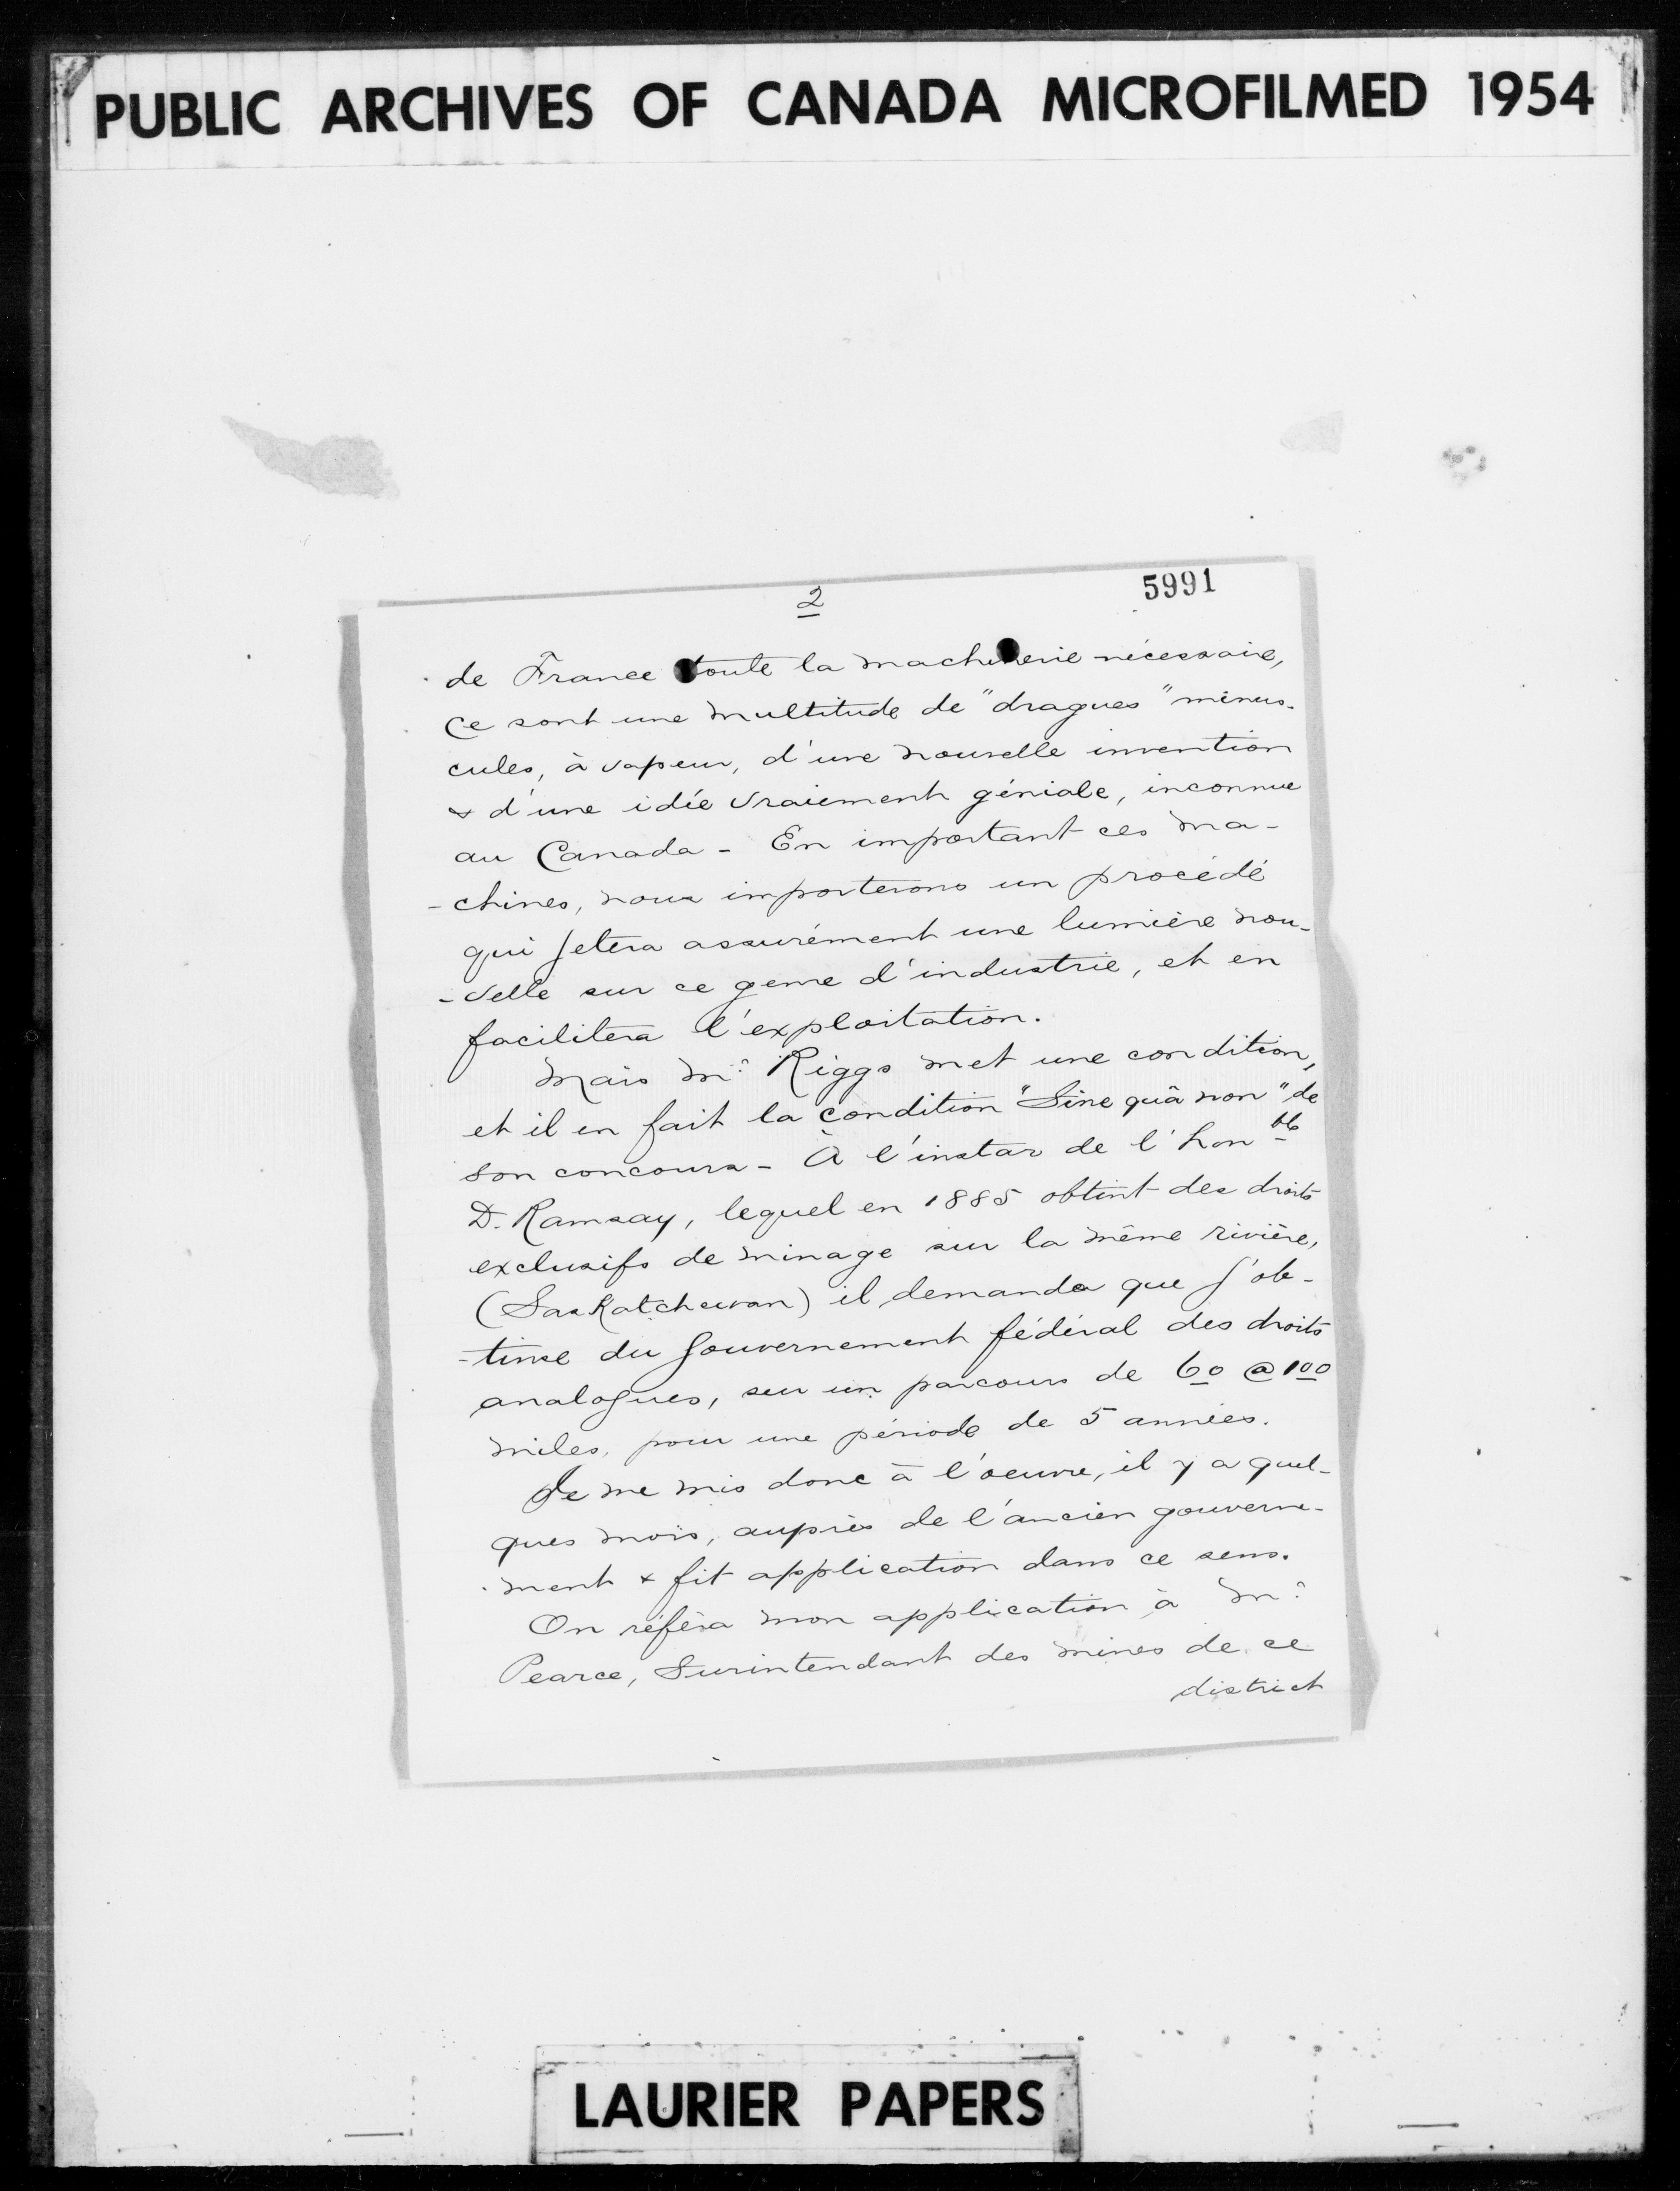 PUBLIC ARCHIVES OF CANADA MICROFILMED 1954
2
5991
de France toute la machinerie nécessaire,
Ce sont une multitude de "dragues" minus-
cules, à vapeur, d'une nouvelle invention
& d'une idée vraiment géniale, inconnue
au Canada - En important ces ma-
-chines, nous importerons un procédé
qui jetera assurément une lumière nou-
-velle sur ce genre d'industrie, et en
facilitera l'exploitation.
Mais Mr Riggs met une condition,
et il en fait la condition "Sine quâ non" de
son concours - À l'instar de l'honble
D. Ramsay, lequel en 1885 obtint des droits
exclusifs de minage sur la même rivière,
(Saskatchewan) il demanda que j'ob-
-tinse du gouvernement fédéral des droits
analogues, sur un parcours de 60 @ 100
miles, pour une période de 5 années.
Je me mis donc à l'oeuvre, il y a quel-
ques mois, auprès de l'ancien gouverne-
-ment & fit application dans ce sens.
On référa mon application à Mr
Pearce, Surintendant des mines de ce
district
LAURIER PAPERS